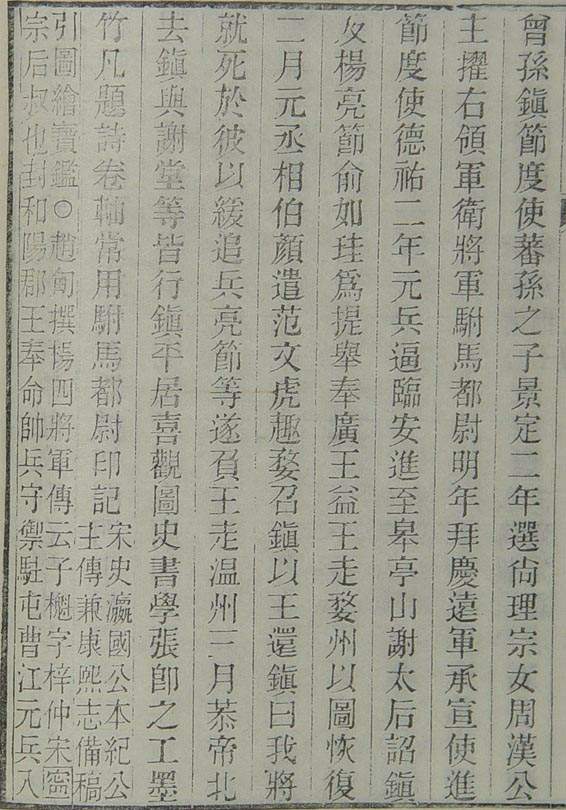 曾孫鎭節度使蕃孫之子景定二年選尙理宗女周漢公
主擢右領軍衛將軍駙馬都尉明年拜慶遠軍承宣使進
節度使德祐二年元兵逼臨安進至皋亭山謝太后詔鎭
及楊亮節俞如珪爲提舉奉廣王益王走婺州以圖恢復
二月元丞相伯顏遣范文虎趣婺召鎭以王還鎭曰我將
就死於彼以緩追兵亮節等遂負王走温州三月恭帝北
去鎭與謝堂等皆行鎭平居喜觀圖史書學張卽之工墨
竹凡題詩卷軸常用駙馬都尉印記
宋史瀛國公本紀公
主傳兼康熙志備稿
引圖繪寶鑑○趙甸撰楊四將軍傳云子樬字梓仲宋寧
宗后叔也封和陽郡王奉命帥兵守禦駐屯曹江元兵入